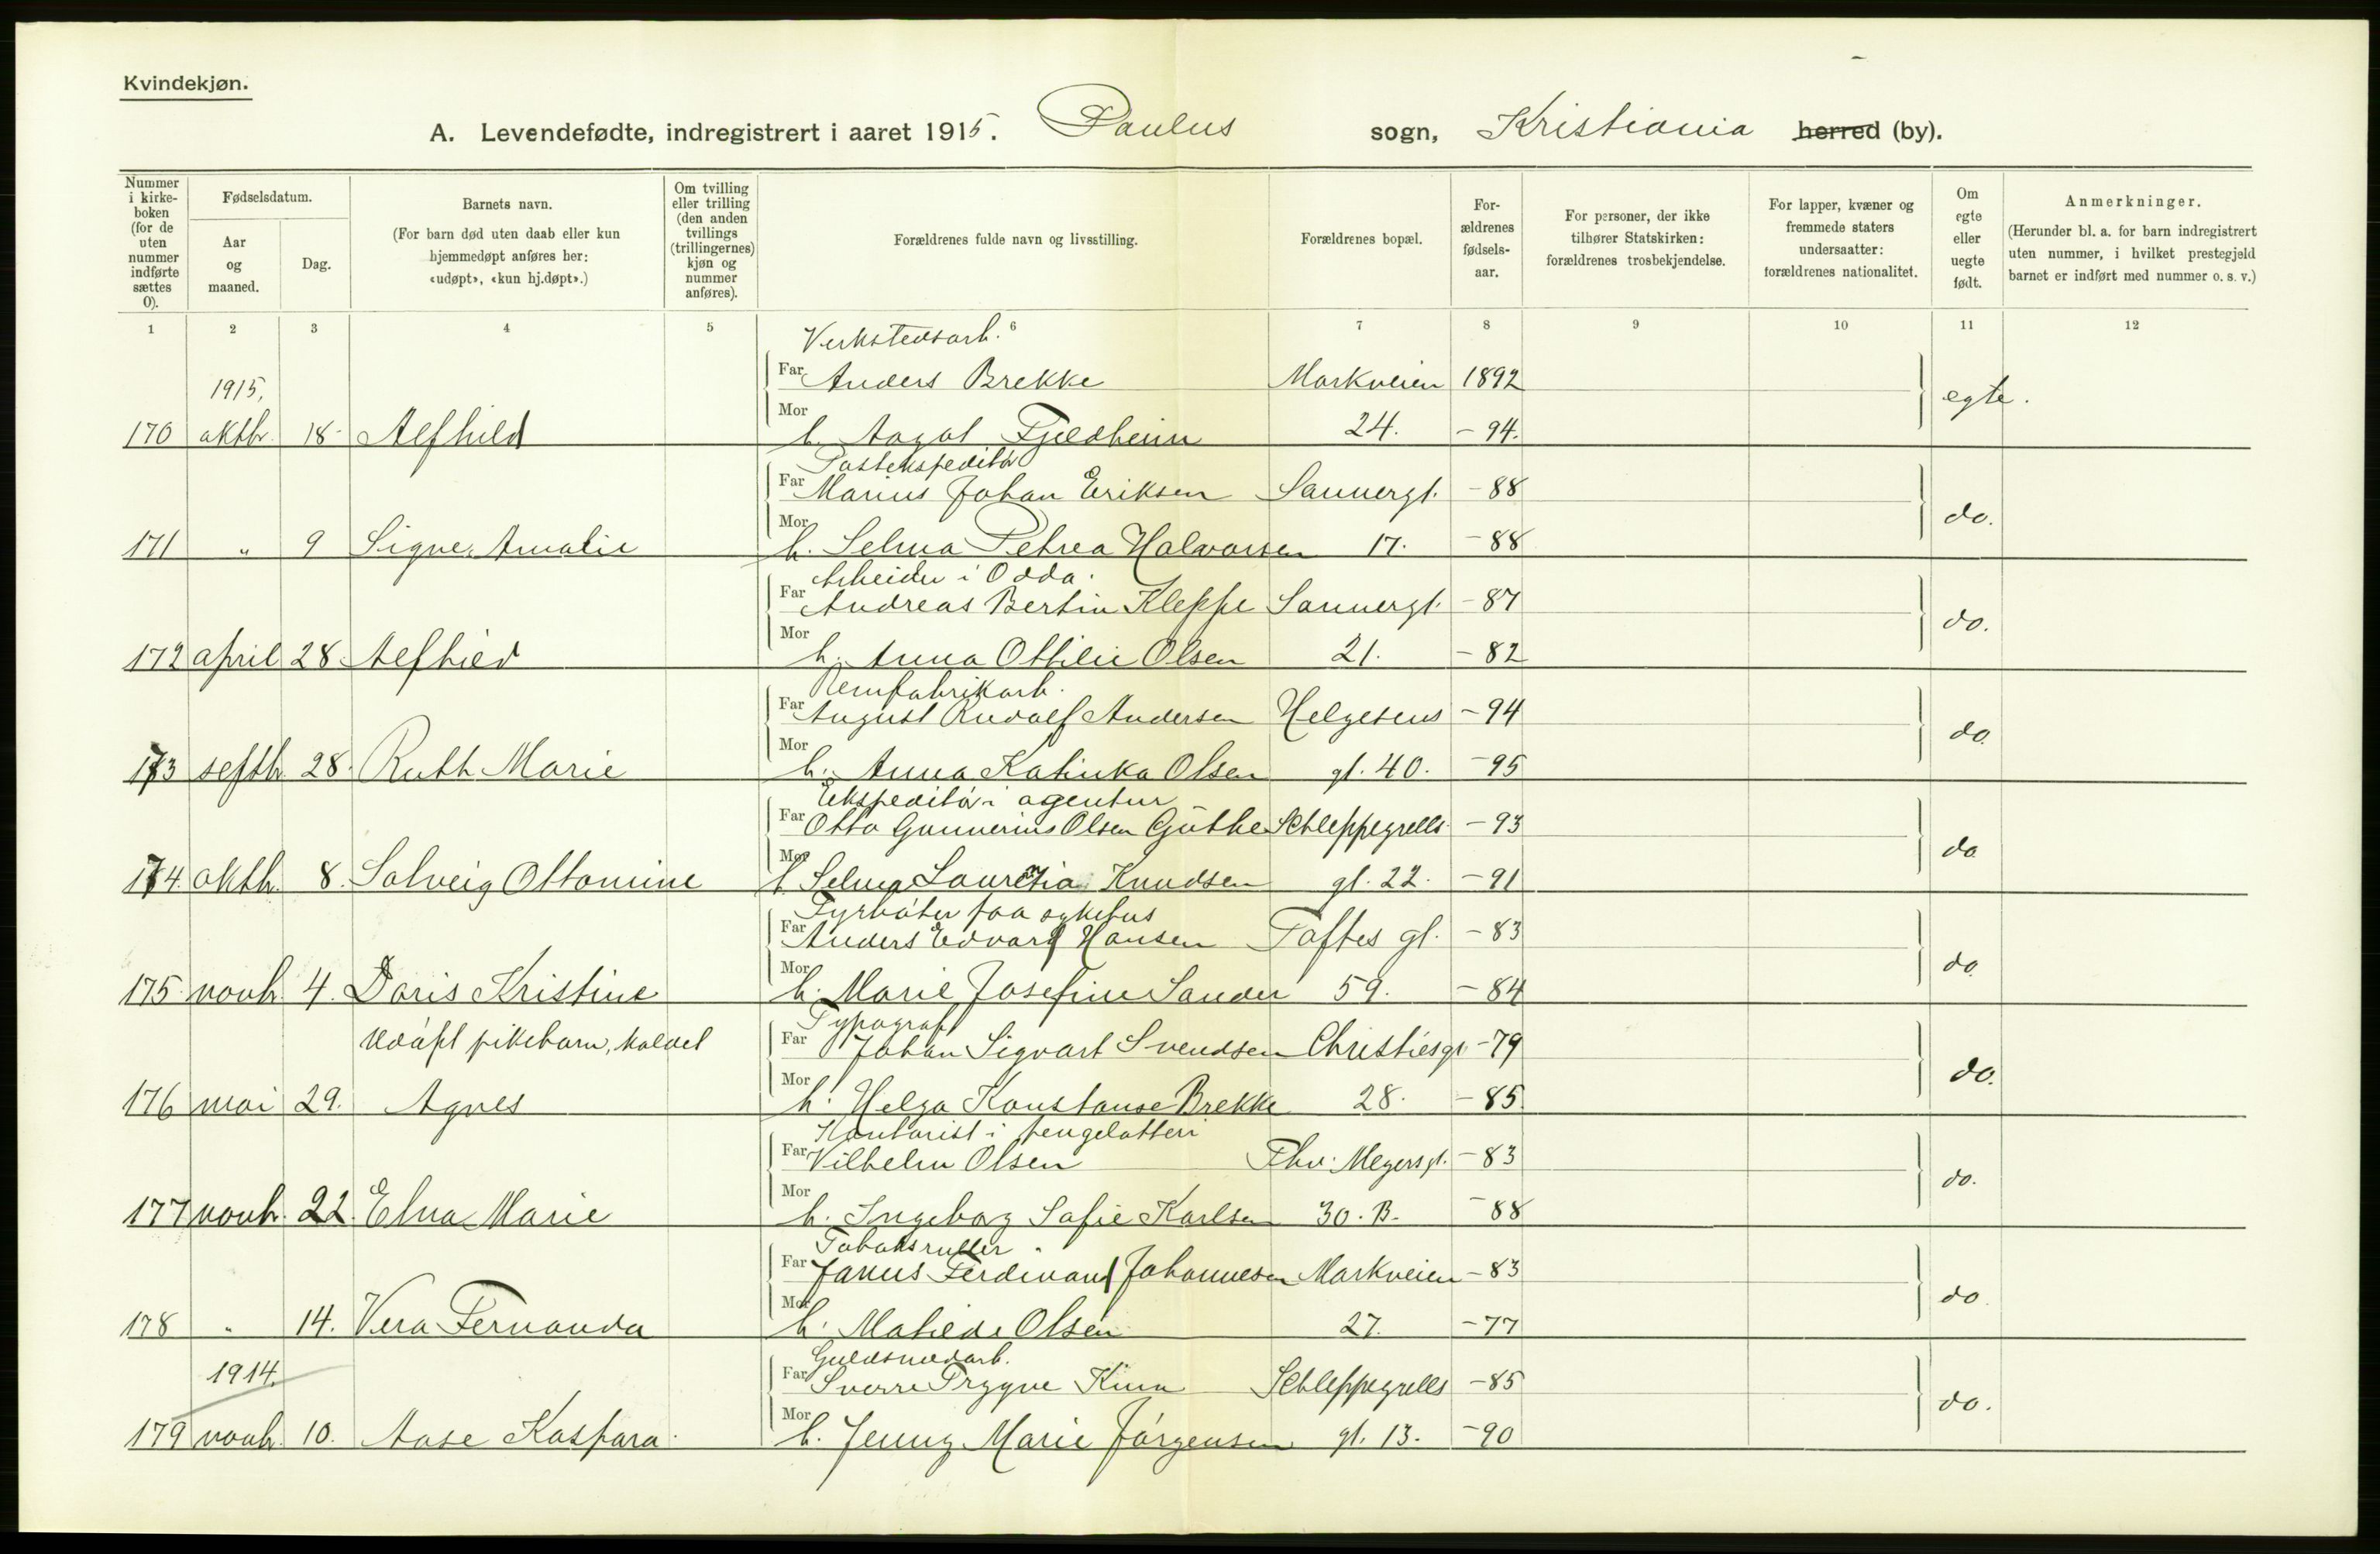 Kvindekjøn.
A. Levendefødte, indregistrert i aaret 1915. Paulus sogn, Kristiania herred (by).
Nummer i kirkeboken (for de uten nummer indførte sættes 0).
Fødselsdatum.
Aar og maaned.
Dag.
Barnets navn.
(For barn død uten daab eller kun hjemmedøpt anføres her: «udøpt», «kun hj.døpt».)
Om tvilling eller trilling (den anden tvillings (trillingernes) kjøn og nummer anføres).
Forældrenes fulde navn og livsstilling.
Forældrenes bopæl.
Forældrenes fødselsaar.
For personer, der ikke tilhører Statskirken: forældrenes trosbekjendelse.
For lapper, kvæner og fremmede staters undersaatter: forældrenes nationalitet.
Om egte eller uegte født.
Anmerkninger.
(Herunder bl. a. for barn indregistrert uten nummer, i hvilket prestegjeld barnet er indført med nummer o. s. v.)
1 2 3 4 5 6 7 8 9 10 11 12
Verkstedsarb.
1915, Far Anders Brekke Markveien 1892 egte.
170 oktbr. 18. Alfhild Mor h. Aagot Fjeldheim 24. - 94.
Postekspeditør
Far Marius Johan Eriksen Sannergt. - 88 do.
171 " 9 Signe Amalie Mor h. Selma Petrea Halvorsen 17. - 88
Arbeider i Odda.
Far Andreas Bertin Kleppe Sannergt. - 87 do.
172 april 28. Alfhild Mor h. Anna Ottilie Olsen 21. - 82
Remfabrikarb.
Far August Rudolf Andersen Helgesens - 94 do.
173 septbr. 28. Ruth Marie Mor h. Anna Katinka Olsen gt. 40. - 95
Ekspeditør i agentur
Far Otto Gunnerius Olsen Güthe Schleppegrells - 93 do
174. oktbr. 8. Solveig Ottomine Mor h. Selma Lauretzia Knudsen gt. 22. - 91
Fyrbøter paa sykehus
Far Anders Edvard Hansen Toftes gt. - 83 do.
175 novbr. 4. Doris Kristine Mor h. Marie Josefine Sander 59. - 84
Typograf
Udøpt pikebarn, kaldet Far Johan Sigvart Svendsen Christiesgt - 79 do.
176 mai 29. Agnes Mor h. Helga Konstanse Brekke 28. - 85.
Kontorist i pengelotteri
Far Vilhelm Olsen Thv. Meyersgt. - 83 do.
177 novbr. 22. Elna Marie Mor h. Ingeborg Sofie Karlsen 30. B. - 88
Tobaksruller
Far Janus Ferdinand Johannesen Markveien - 83 do.
178 " 14. Vera Fernanda Mor h. Matilde Olsen 27. - 77
Guldsmedarb.
1914. Far Sverre Trygve Kinn Schleppegrells - 85 do.
179 novbr. 10. Aase Kaspara. Mor h. Jenny Marie Jørgensen gt. 13. - 90